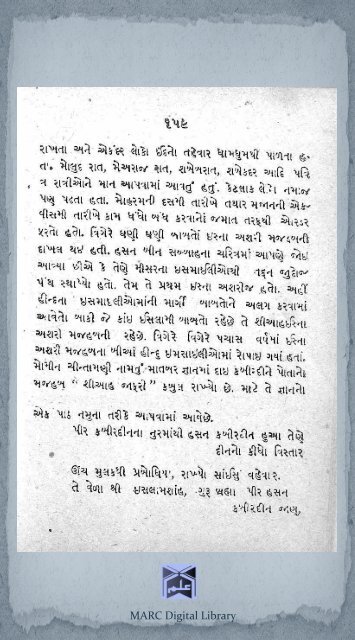 ૧૫૯
રાખતા અને એકંદર લોકો ઈદનો તહેવાર ધામધુમથી પાળતા હ-
તા. મૌલુદ રાત, મેઅરાજ રાત, શબેબરાત, શબેકદર આદિ પવિ
ત્ર રાત્રીઓને માન આપવામાં આવતું હતું. કેટલાક લોકો નમાજ
પણ પઢતા હતા. મોહરમની દસમી તારીખે તથા રમજાનની એક-
વીસમી તારીખે કામ ધંધો બંધ કરવાનો જમાત તરફથી ઓરડર
ફરતો હતો. વિગેરે ઘણી ઘણી બાબતો ઇસ્ના અશરી મજહબની
દાખલ થઇ હતી. હસન બીન સબ્બાહના ચરિત્રમાં આપણે જોઇ
આવ્યા છીએ કે તેણે મીસરના ઇસમાઈલીઓથી તદ્દન જુદોજ
પંથ સ્થાપ્યો હતો. તેમ તે પ્રથમ ઇસ્ના અશરીજ હતો. અહીં
હીન્દના ઇસમાઇલીઓમાંની માર્ગી બાબતોને અલગ કરવામાં
આવેતો બાકી જે કાંઇ ઇસ્લામી બાબતો રહેછે તે શીઆહઇસ્ના
અશરી મજહબની રહેછે. વિગેરે વિગેરે પચાસ વર્ષમાં ઇસ્ના
અશરી મજહબના બીયાં હીન્દુ ઇમસાઇલીઓમાં રોપાઇ ગયાં હતાં.
મોમીન ચીન્તામણી નામનું માતબર જ્ઞાનમાં દાઇ કબીરદીને પોતાનો
મજહબ “ શીઆહ જાફરી ” કબુલ રાખ્યો છે. માટે તે જ્ઞાનનો
એક પાઠ નમુના તરીકે આપવામાં આવેછે.
પીર કબીરદીનના નુરમાંથી હસન કબીરદીન હુઆ તેણે
દીનનો કીધો વિસ્તાર
ઊંચ મુલકથી પ્રબોધિયા, રાખ્યો સાંઈસું વહેવાર.
તે વેળા થી ઇસલામશાહ, ગુરૂ બ્રહ્મા પીર હસન
કબીરદીન જાણુ,
MARC Digital Library